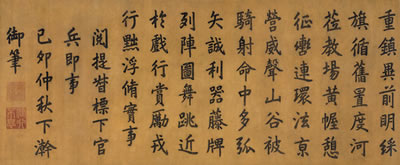 重鎮異前明綵
旗循舊置度河
蒞教場黃幄憩
征轡連環法京
營威聲山谷被
騎射命中多弧
矢誠利器藤牌
列陣圖舞跳近
於戲行賞勵戎
行黜浮脩實事
閱提督標下官
兵即事
己卯仲秋下澣
御筆